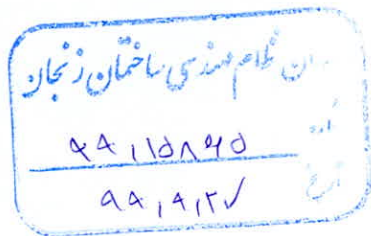 ان نظام مهندسی ساختمان زنجان
۹۹/۱۵۸۶۵
تاریخ ۹۹/۹/۲۷